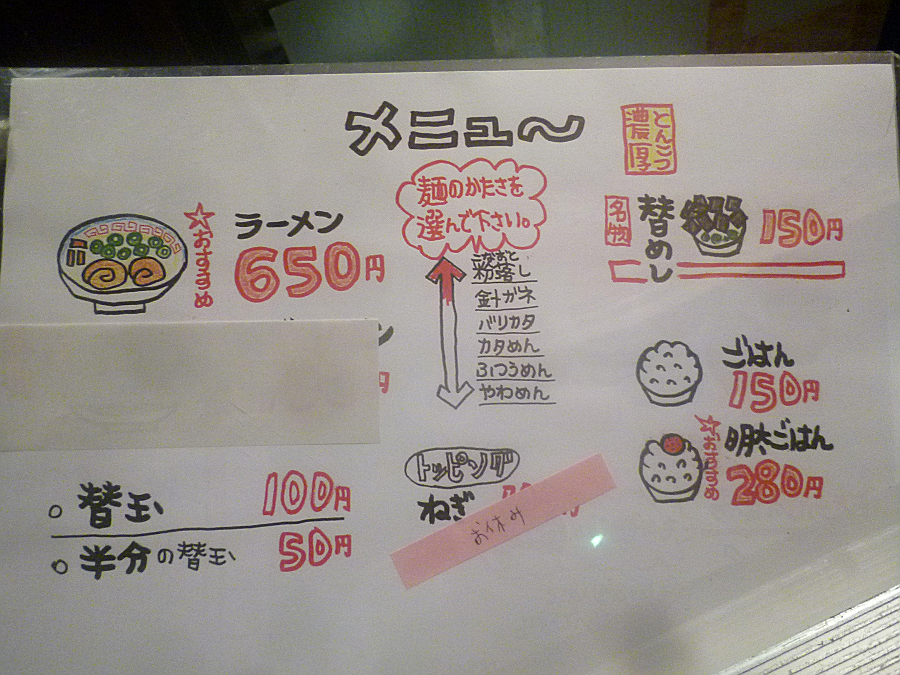 メニュ〜
とんこつ
濃厚
ラーメン
☆おすすめ
650円
麺のかたさを
選んで下さい。
こなおと
粉落し
針ガネ
バリカタ
カタめん
ふつうめん
やわめん
名物
替めし
150円
ごはん
150円
明太ごはん
☆おすすめ
280円
ン
円
トッピング
ねぎ
お休み
○替玉 100円
○半分の替玉 50円